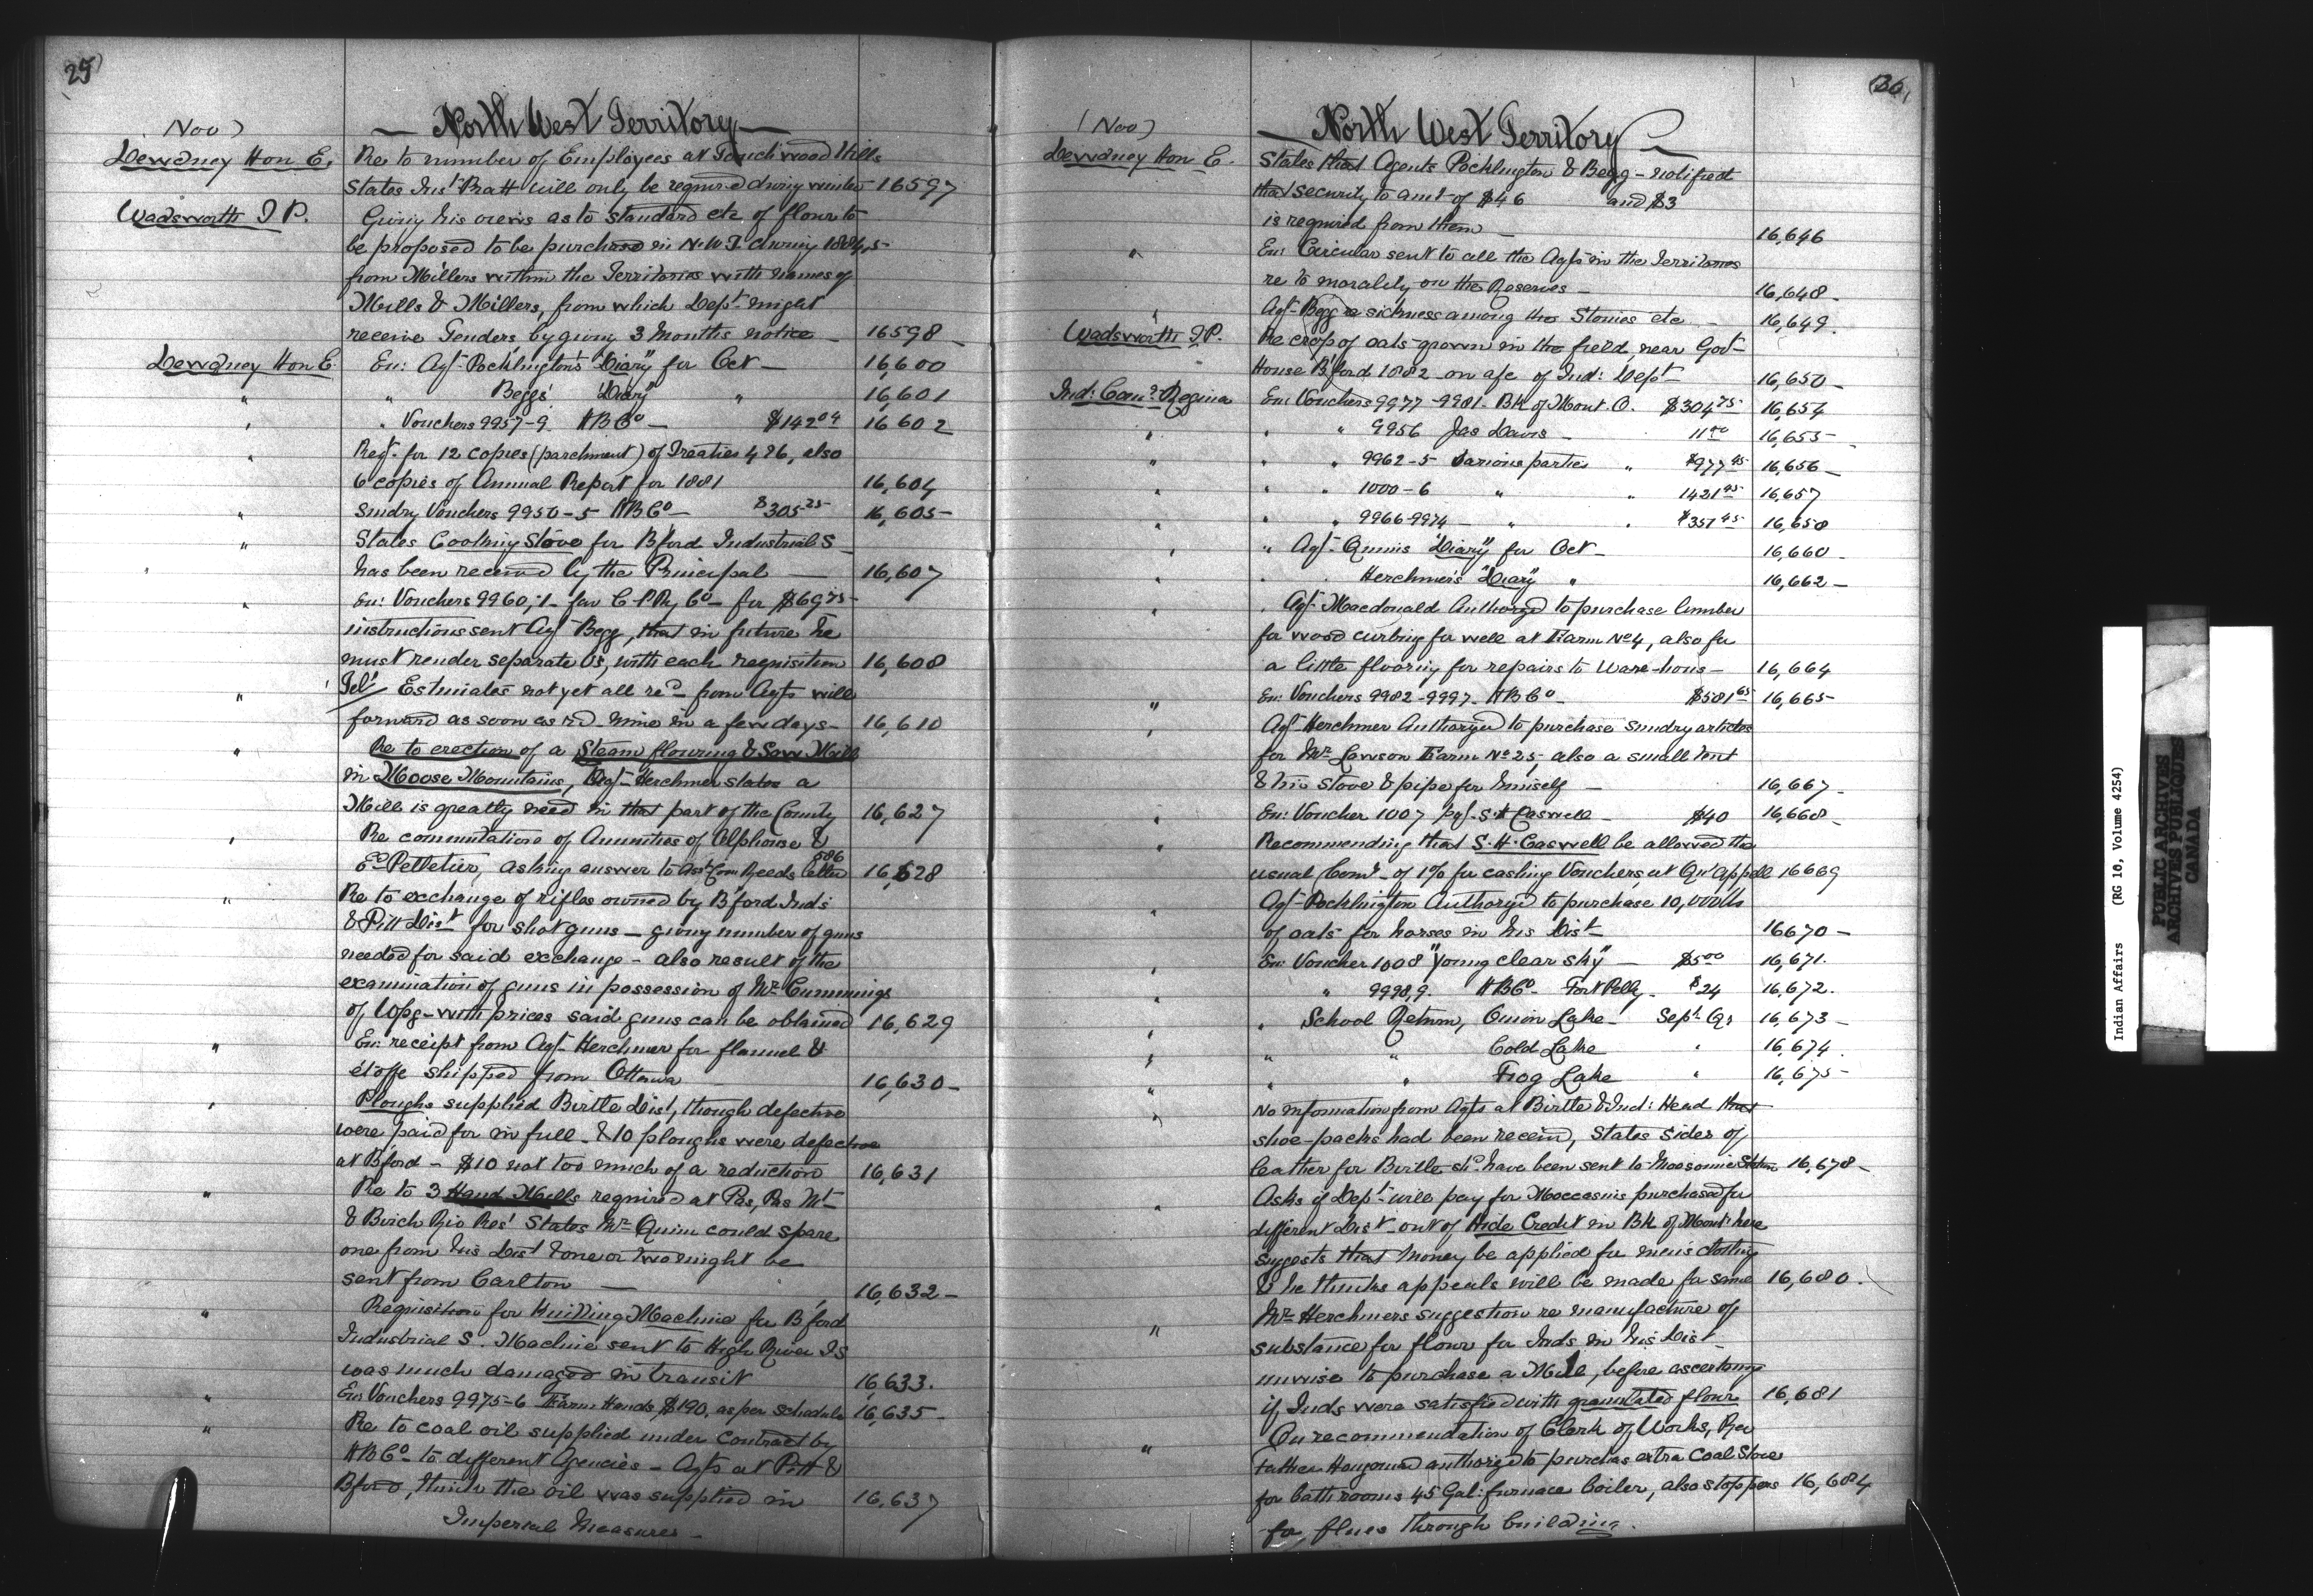 25
(Nov)
— North West Territory —
Dewdney Hon E. Re to number of Employees at Touchwood Hills
States Inst Pratt will only be required during winter 16597
Wadsworth T P. Giving his views as to standard etc of flour to
be proposed to be purchased in N.W.T. during 1884,5
from Millers within the Territories with names of
Mills & Millers, from which Dept might
receive Tenders by giving 3 Months notice — 16598 —
Dewdney Hon E. En: Agt Pocklington's "Diary" for Oct — 16,600
" " Beggs' "Diary" " 16,601
" " Vouchers 9957-9 HBCo — $142.04 16,602
" Reqt for 12 copies (parchment) of Treaties 4 & 6, also
6 copies of Annual Report for 1881 16,604
" Sundry Vouchers 9950-5 HBCo — $305.25 16,605 —
" States Cooking Stove for B'ford Industrial S
" has been received by the Principal — 16,607
" En: Vouchers 9960,-1 fav C.P.Ry Co — for $69.75
instructions sent Agt Begg, that in future he
must render separate a/cs, with each requisition 16,608
" Tel/ Estimates not yet all recd from Agts will
forward as soon as recd mine in a few days — 16,610
" Re to erection of a Steam flouring & Saw Mill
in Moose Mountains, Agt Herchmer states a
Mill is greatly need in that part of the County 16,627
" Re commutations of Annuities of Alphonse &
Ed Pelletier, asking answer to Asst Com Reeds letter 586 16,628
" Re to exchange of rifles owned by B'ford Inds
& Pitt Dist for shot guns — giving number of guns
needed for said exchange — also result of the
examination of guns in possession of Mr Cummings
of Wpg — with prices said guns can be obtained 16,629
" En: receipt from Agt Herchmer for flannel &
etoffe shipped from Ottawa 16,630 —
" Ploughs supplied Birtle Dist, though defective
were paid for in full — & 10 ploughs were defective
at B'ford — $10 not too much of a reduction 16,631
" Re to 3 Hand Mills required at Pas, Pas Mt
& Birch Riv Res' States Mr Quinn could spare
one from his Dist & one or two might be
sent from Carlton — 16,632 —
" Requisition for Knitting Machine for B'ford
Industrial S. Machine sent to High River I S
was much damaged in transit 16,633.
" En: Vouchers 9975-6 Farm Hands, $190. as per schedule 16,635 —
" Re to coal oil supplied under Contract by
HBCo to different Agencies — Agts at Pitt &
B'ford, think the oil was supplied in 16,637
Imperial Measures —
(26)
(Nov)
— North West Territory —
Dewdney Hon E. States that Agents Pocklington & Begg — notified
that security to amt of $46 and $3
is required from them — 16,646
" En: Circular sent to all the Agts in the Territories
re to morality on the Reserves — 16,648 —
" Agt Begg re sickness among the Stonies etc — 16,649.
Wadsworth T.P. Re crop of oats grown in the field, near Govt
House B'ford 1882 on a/c of Ind: Dept 16,650 —
Ind: Comr Regina En: Vouchers 9977-9981. Bk of Mont. O. $304.75 16,654
" " " 9956 Jas Davis — 11.00 16,655 —
" " " 9962-5 Various parties " $977.45 16,656 —
" " " 1000-6 " " 1421.45 16,657
" " " 9966-9974 — " " $351.45 16,658
" " Agt Quinns "Diary" for Oct — 16,660 —
" " Herchmer's "Diary" " 16,662 —
" Agt Macdonald Authorzd to purchase lumber
for wood curbing for well at Farm No 4, also for
a little flooring for repairs to Ware-hous — 16,664
" En: Vouchers 9982-9997 HBCo — $581.65 16,665 —
" Agt Herchmer Authorzd to purchase sundry articles
for Mr Lawson Farm No 25, also a small tent
& tin stove & pipe for himself — 16,667 —
" En: Voucher 1007 S.H. Caswell — $40 16,668 —
" Recommending that S.H. Caswell be allowed the
usual Comn of 1% for cashing Vouchers, at Qu'appell 16669
" Agt Pocklington Authorzd to purchase 10,000 lbs
of oats for horses in his Dist 16670 —
" En: Voucher 1008 "Young clear sky" — $5.00 16,671.
" " 9998,9. HBCo Fort Pelly. $24 16,672.
" " School Return, Onion Lake — Sept Qr 16,673 —
" " " Cold Lake " 16,674.
" " " Frog Lake " 16,675 —
" No information from Agts at Birtle & Ind: Head that
shoe-packs had been receivd, States Sides of
leather for Birtle shd have been sent to Moosomin Station 16,678 —
" Asks if Dept will pay for Moccasins purchased for
different Dist — out of Hide Credit in Bk of Mont: here
suggests that money be applied for mens clothing
& he thinks appeals will be made for same 16,680.
" Mr Herchmers suggestion re manufacture of
substance for flour for Inds in his Dist
unwise to purchase a Mill, before ascertaing
if Inds were satisfied with granulated flour 16,681
" On recommendation of Clerk of Works, Rev
Father Hugonnard authorzd to purchas extra Coal Stove
for bath rooms 45 Gal: furnace boiler, also stoppers 16,684
for flues through building.
Indian Affairs (RG 10, Volume 4254)
PUBLIC ARCHIVES
ARCHIVES PUBLIQUES
CANADA